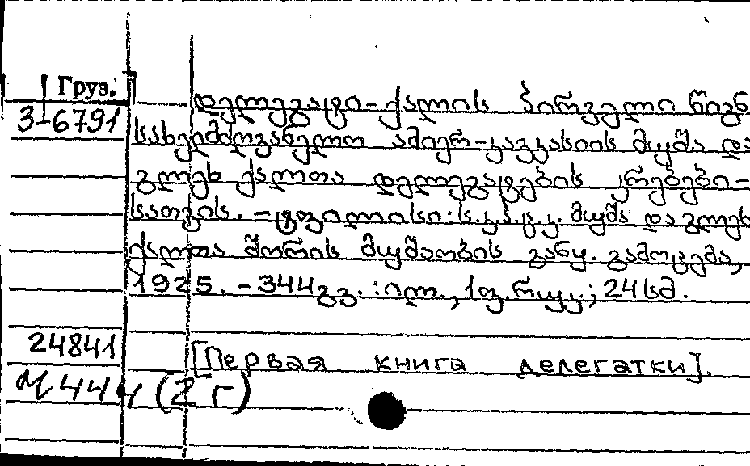 Груз.
3-6791
დელეგატი-ქალის პირველი წიგნ
სახელმძღვანელო ამიერ-კავკასიის მუშა და
გლეხ ქალთა დელეგატების კრებები-
სათვის. – ტფილისი: ს.კ.ა.ც.კ. მუშა და გლეხ
ქალთა შორის მუშაობის განყ. გამოცემა,
1925. – 344გვ. : ილ., 1ფ.რუკ.; 24სმ.
24841
[Первая книга делегатки].
М444 (2г)